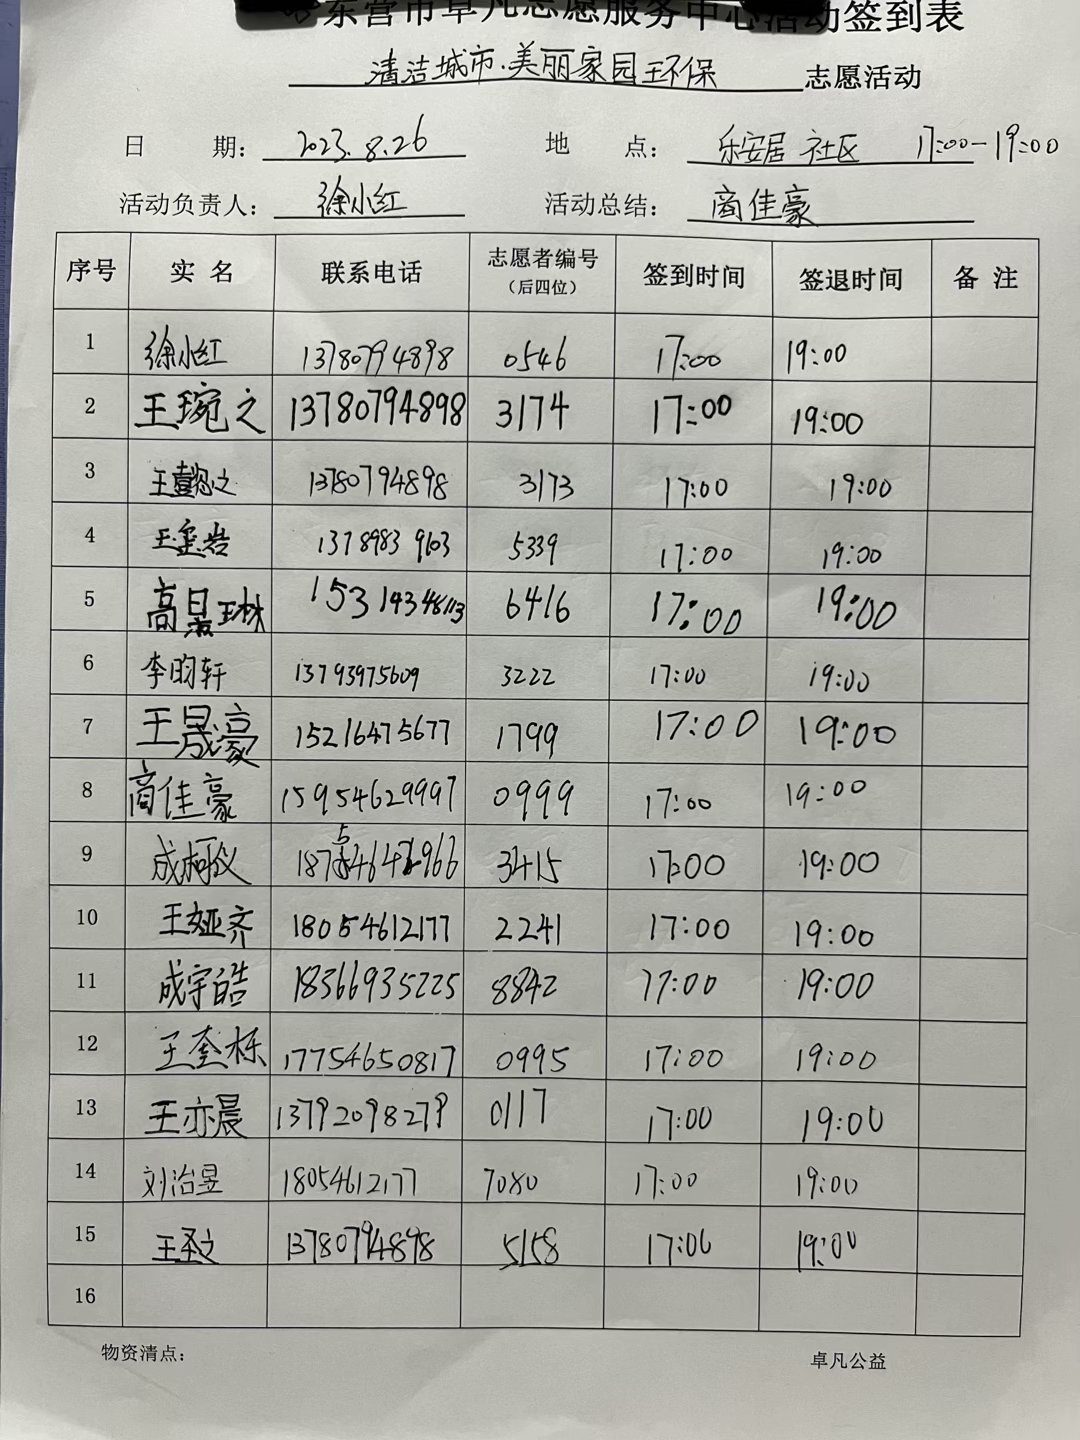 东营市卓凡志愿服务中心活动签到表
清洁城市·美丽家园环保 志愿活动
日 期: 2023.8.26 地 点: 乐安居 社区 17:00-19:00
活动负责人: 徐小红 活动总结: 商佳豪
序号 实 名 联系电话 志愿者编号 (后四位) 签到时间 签退时间 备 注
1 徐小红 13780794898 0546 17:00 19:00
2 王琬之 13780794898 3174 17:00 19:00
3 王懿之 13780794898 3173 17:00 19:00
4 13789839603 5339 17:00 19:00
5 高 琳 6416 17:00 19:00
6 李昀轩 13793975609 3222 17:00 19:00
7 王晟豪 15216475677 1799 17:00 19:00
8 商佳豪 15954629997 0999 17:00 19:00
9 3415 17:00 19:00
10 王娅齐 18054612177 2241 17:00 19:00
11 成宇皓 18366935225 8842 17:00 19:00
12 王奎栋 17754650817 0995 17:00 19:00
13 王亦晨 13792098279 0117 17:00 19:00
14 刘治昱 18054612177 7080 17:00 19:00
15 王圣文 13780794898 5158 17:00 19:00
16
物资清点: 卓凡公益